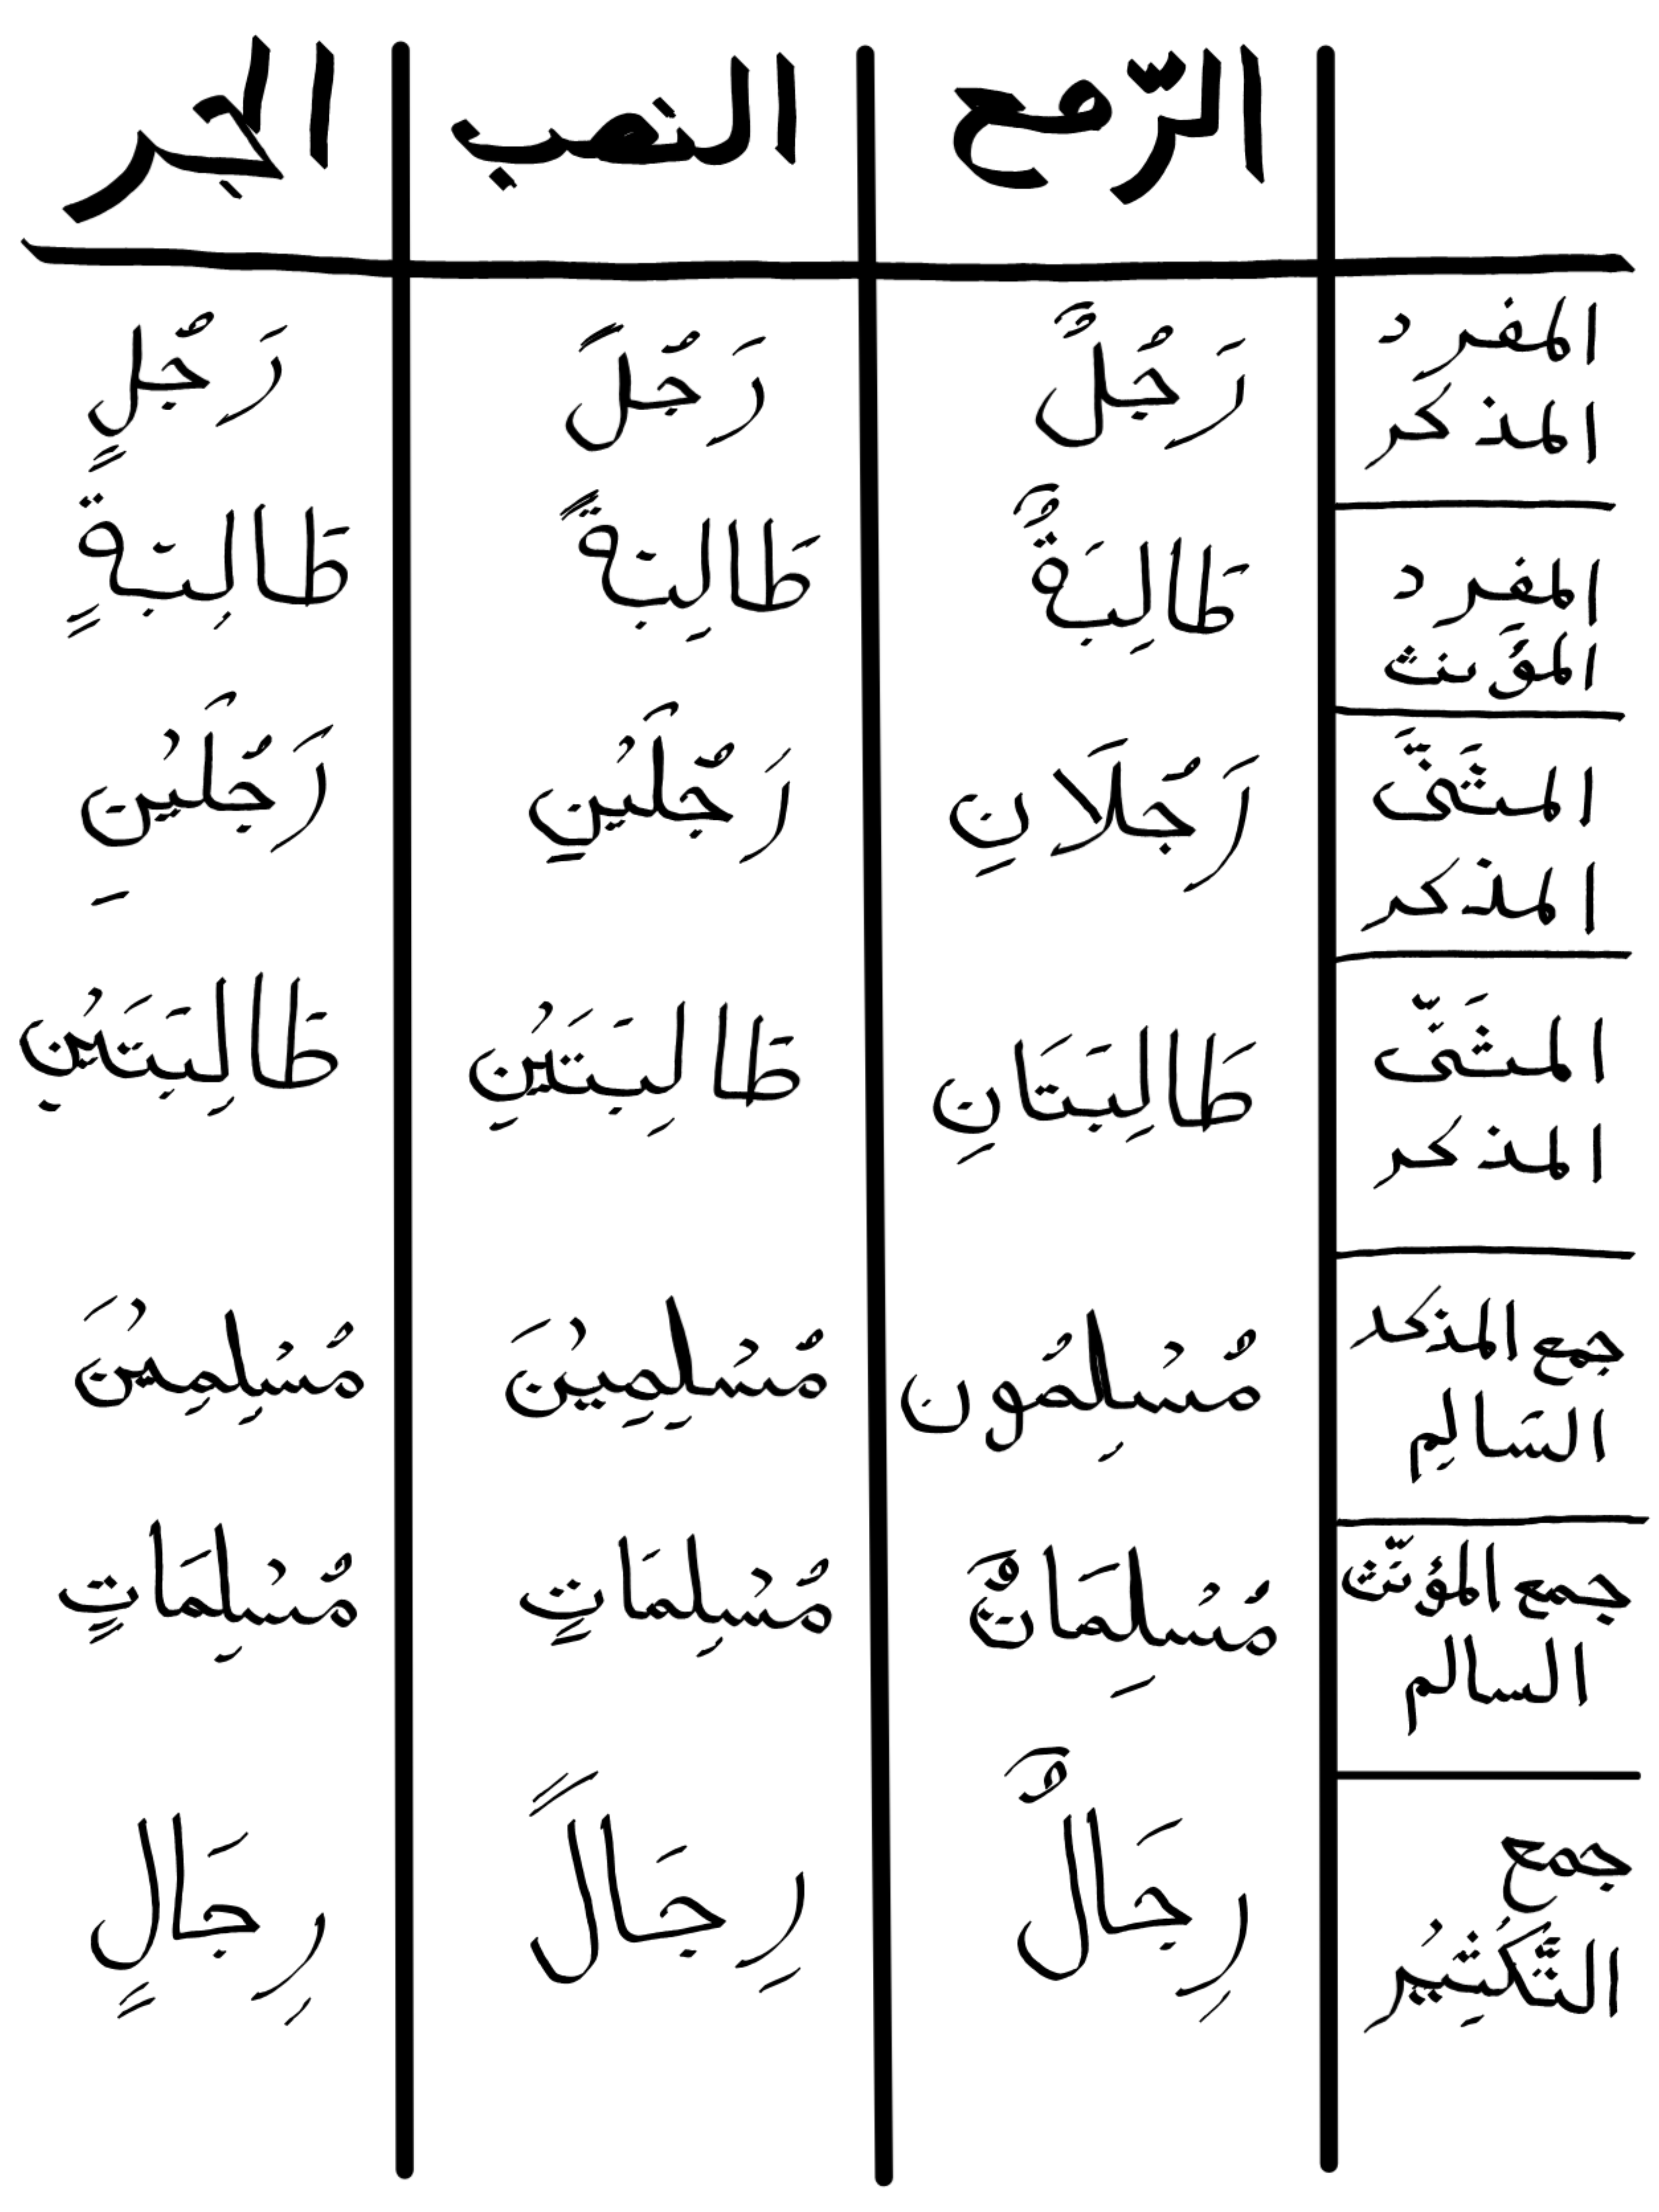 الرّفع النصب الجر
المفرد رَجُلٌ رَجُلً رَجُلٍ
المذكر
طَالِبَةٌ طَالِبَةً طَالِبَةٍ
المفرد
المؤَنث
المثَنَّى رَجُلَانِ رَجُلَيْنِ رَجُلَيْنِ
المذكر
المثَنّى طَالِبَتَانِ طَالِبَتَيْنِ طَالِبَتَيْنِ
المذكر
جمع المذكر مُسْلِمُون مُسْلِمِيْنَ مُسْلِمِيْنَ
السَالِم
جمع المؤنّث مُسْلِمَاتٌ مُسْلِمَاتٍ مُسْلِمَاتٍ
السالم
جمع رِجَالٌ رِجَالً رِجَالٍ
التَّكْثِيْر